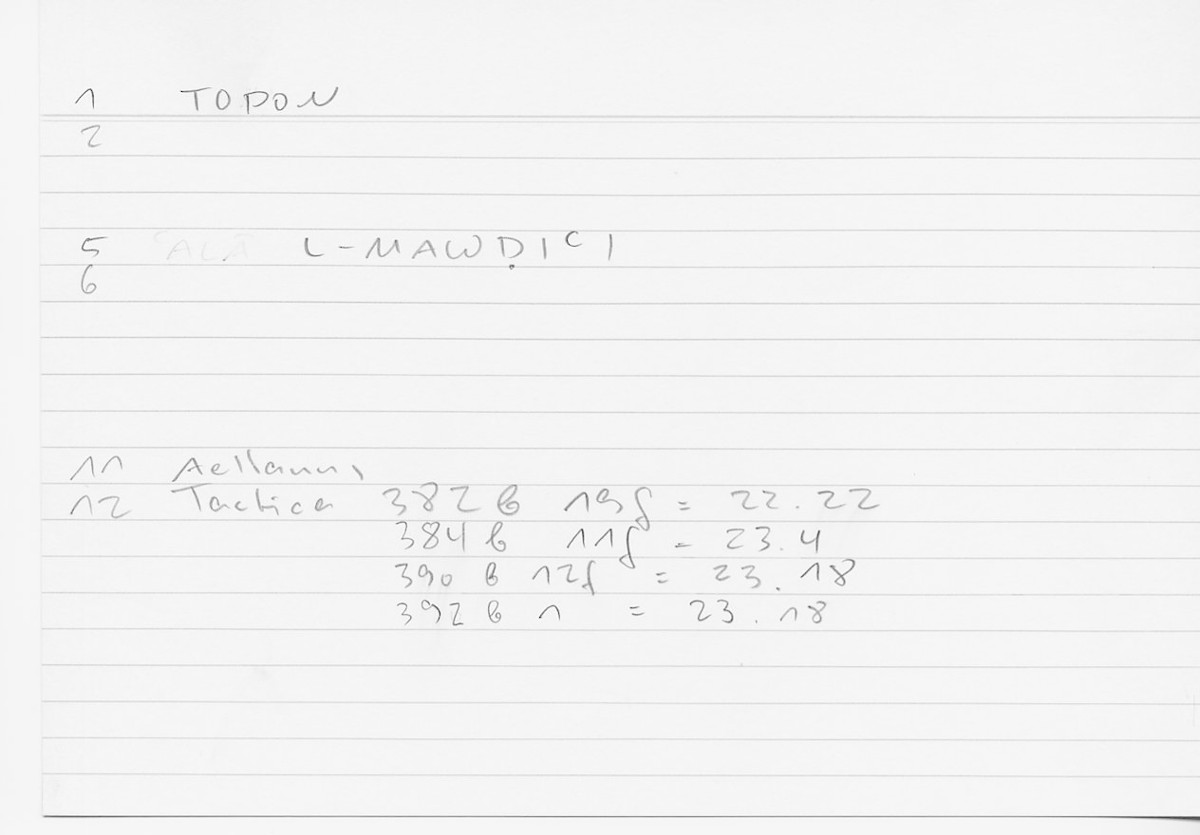 1 TOPON
2
5 ʿALĀ L-MAWḌIʿI
6
11 Aelianus,
12 Tactica 382 b 19f = 22.22
384 b 11f = 23.4
390 b 12f = 23.18
392 b 1 = 23.18